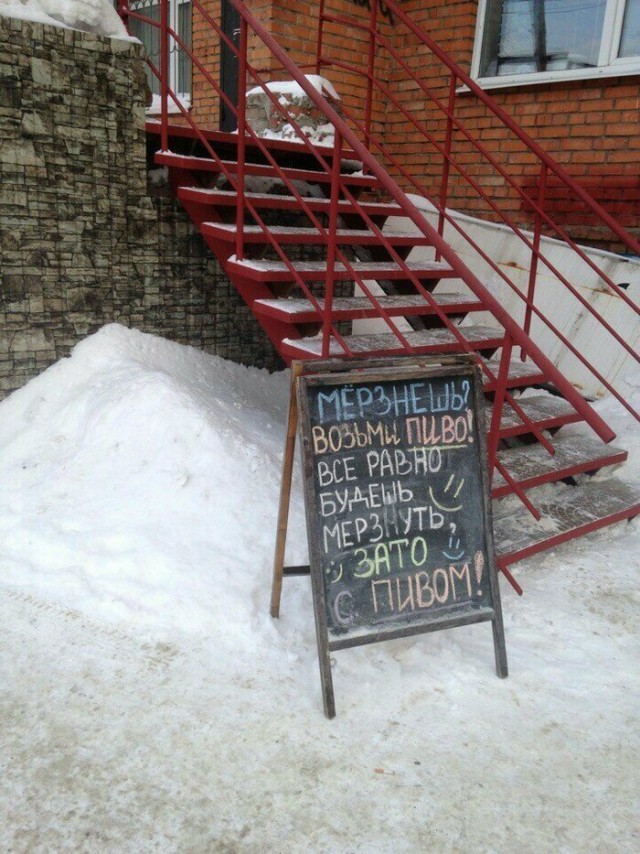 МЁРЗНЕШЬ?
ВОЗЬМИ ПИВО!
ВСЕ РАВНО
БУДЕШЬ
МЕРЗНУТЬ,
ЗАТО
С ПИВОМ!